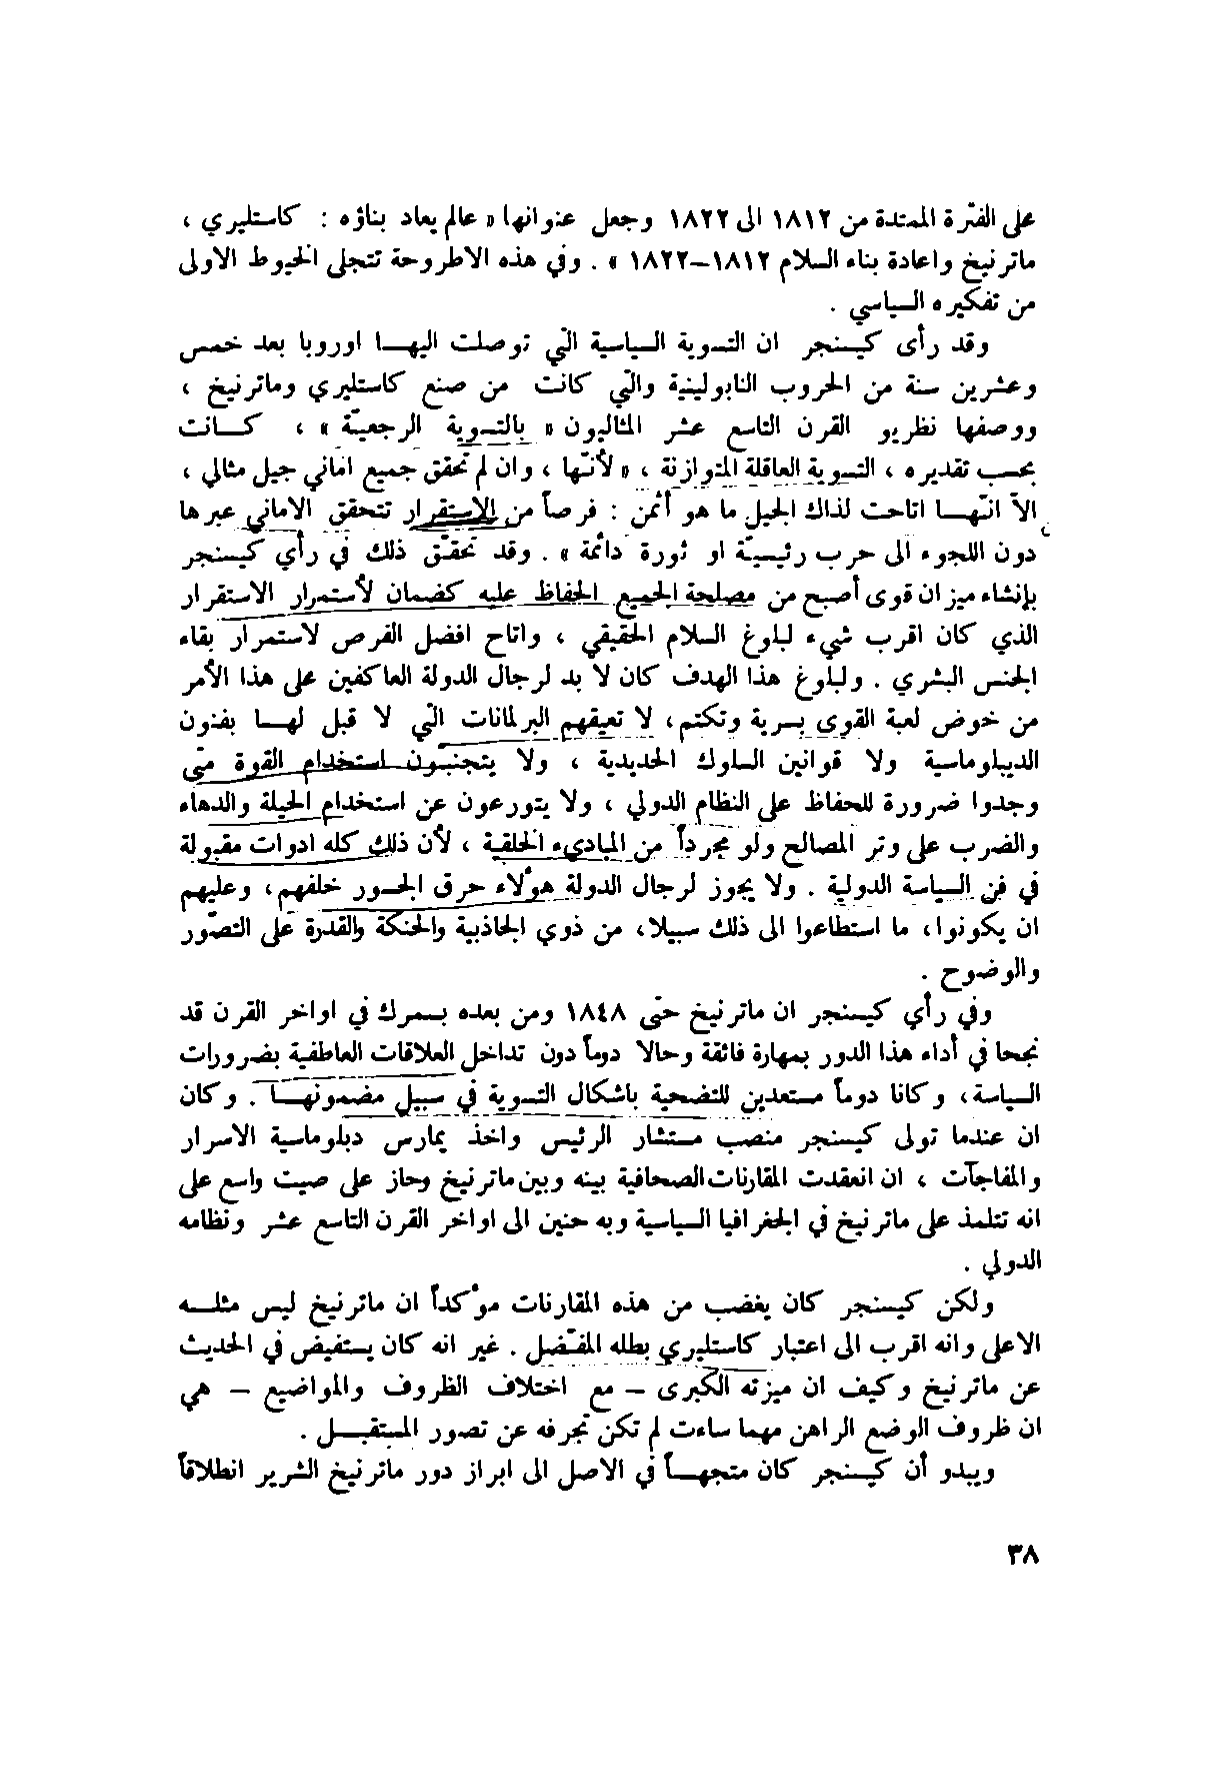 على الفترة الممتدة من ١٨١٢ الى ١٨٢٢ وجعل عنوانها « عالم يعاد بناؤه : كاستليري ،
ماترنيخ واعادة بناء السلام ١٨١٢–١٨٢٢ » . وفي هذه الاطروحة تتجلى الخيوط الاولى
من تفكيره السياسي .
وقد رأى كيسنجر ان التسوية السياسية التي توصلت اليها اوروبا بعد خمس
وعشرين سنة من الحروب النابولينية والتي كانت من صنع كاستليري وماترنيخ ،
ووصفها نظريو القرن التاسع عشر المثاليون « بالتسوية الرجعيّة » ، كانت
بحسب تقديره ، التسوية العاقلة المتوازنة ، « لأنّها ، وان لم تحقق جميع اماني جيل مثالي ،
الاّ انّها اتاحت لذاك الجيل ما هو أثمن : فرصاً من الاستقرار تتحقق الاماني عبرها
دون اللجوء الى حرب رئيسيّة او ثورة دائمة » . وقد تحقّق ذلك في رأي كيسنجر
بإنشاء ميزان قوى أصبح من مصلحة الجميع الحفاظ عليه كضمان لأستمرار الاستقرار
الذي كان اقرب شيء لبلوغ السلام الحقيقي ، واتاح افضل الفرص لاستمرار بقاء
الجنس البشري . ولبلوغ هذا الهدف كان لا بد لرجال الدولة العاكفين على هذا الأمر
من خوض لعبة القوى بسرية وتكتم، لا تعيقهم البرلمانات التي لا قبل لها بفنون
الديبلوماسية ولا قوانين السلوك الحديدية ، ولا يتجنبون استخدام القوة متى
وجدوا ضرورة للحفاظ على النظام الدولي ، ولا يتورعون عن استخدام الحيلة والدهاء
والضرب على وتر المصالح ولو مجرداً من المبادىء الخلقية ، لأن ذلك كله ادوات مقبولة
في فن السياسة الدولية . ولا يجوز لرجال الدولة هؤلاء حرق الجسور خلفهم، وعليهم
ان يكونوا، ما استطاعوا الى ذلك سبيلا، من ذوي الجاذبية والحنكة والقدرة على التصّور
والوضوح .
وفي رأي كيسنجر ان ماترنيخ حتى ١٨٤٨ ومن بعده بسمرك في اواخر القرن قد
نجحا في أداء هذا الدور بمهارة فائقة وحالا دوماً دون تداخل العلاقات العاطفية بضرورات
السياسة، وكانا دوماً مستعدين للتضحية باشكال التسوية في سبيل مضمونها . وكان
ان عندما تولى كيسنجر منصب مستشار الرئيس واخذ يمارس دبلوماسية الاسرار
والمفاجآت ، ان انعقدت المقارنات الصحافية بينه وبين ماترنيخ وحاز على صيت واسع على
انه تتلمذ على ماترنيخ في الجغرافيا السياسية وبه حنين الى اواخر القرن التاسع عشر ونظامه
الدولي .
ولكن كيسنجر كان يغضب من هذه المقارنات مؤكداً ان ماترنيخ ليس مثله
الاعلى وانه اقرب الى اعتبار كاستليري بطله المفضّل . غير انه كان يستفيض في الحديث
عن ماترنيخ وكيف ان ميزته الكبرى – مع اختلاف الظروف والمواضيع – هي
ان ظروف الوضع الراهن مهما ساءت لم تكن تجرفه عن تصور المستقبل .
ويبدو أن كيسنجر كان متجهاً في الاصل الى ابراز دور ماترنيخ الشرير انطلاقاً
٣٨